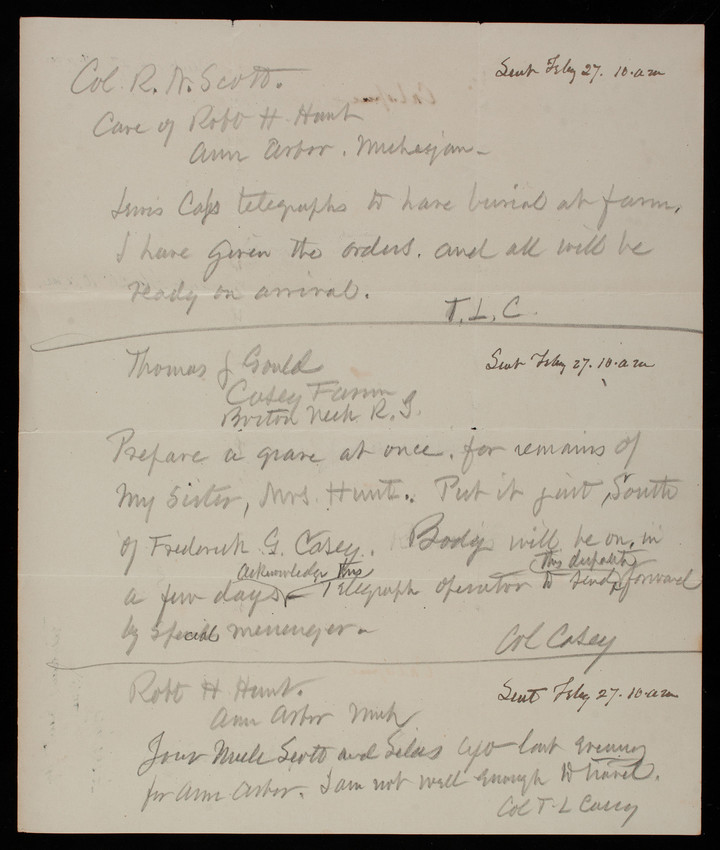 Col. R. N. Scott.
Sent Feby 27. 10. am
Care of Robt H. Hunt
Ann Arbor. Michigan -
Lewis Capt telegraphs to have burial at farm.
I have given the orders. and all will be
ready on arrival.
T. L. C.
Thomas J Gould
Sent Feby 27. 10. am
Casey Farm
Boston Neck R. I.
Prepare a grave at once. for remains of
my sister, Mrs. Hunt. Put it just South
of Frederick G. Casey. Body will be on, in
acknowledge this
this dispatch
a few days. Telegraph operator to send forward
by special messenger -
Col Casey
Robt H. Hunt.
Sent Feby 27. 10 am
Ann Arbor Mich
Your Uncle Scott and Silas go last evening
for Ann Arbor. I am not well enough to travel.
Col T. L Casey